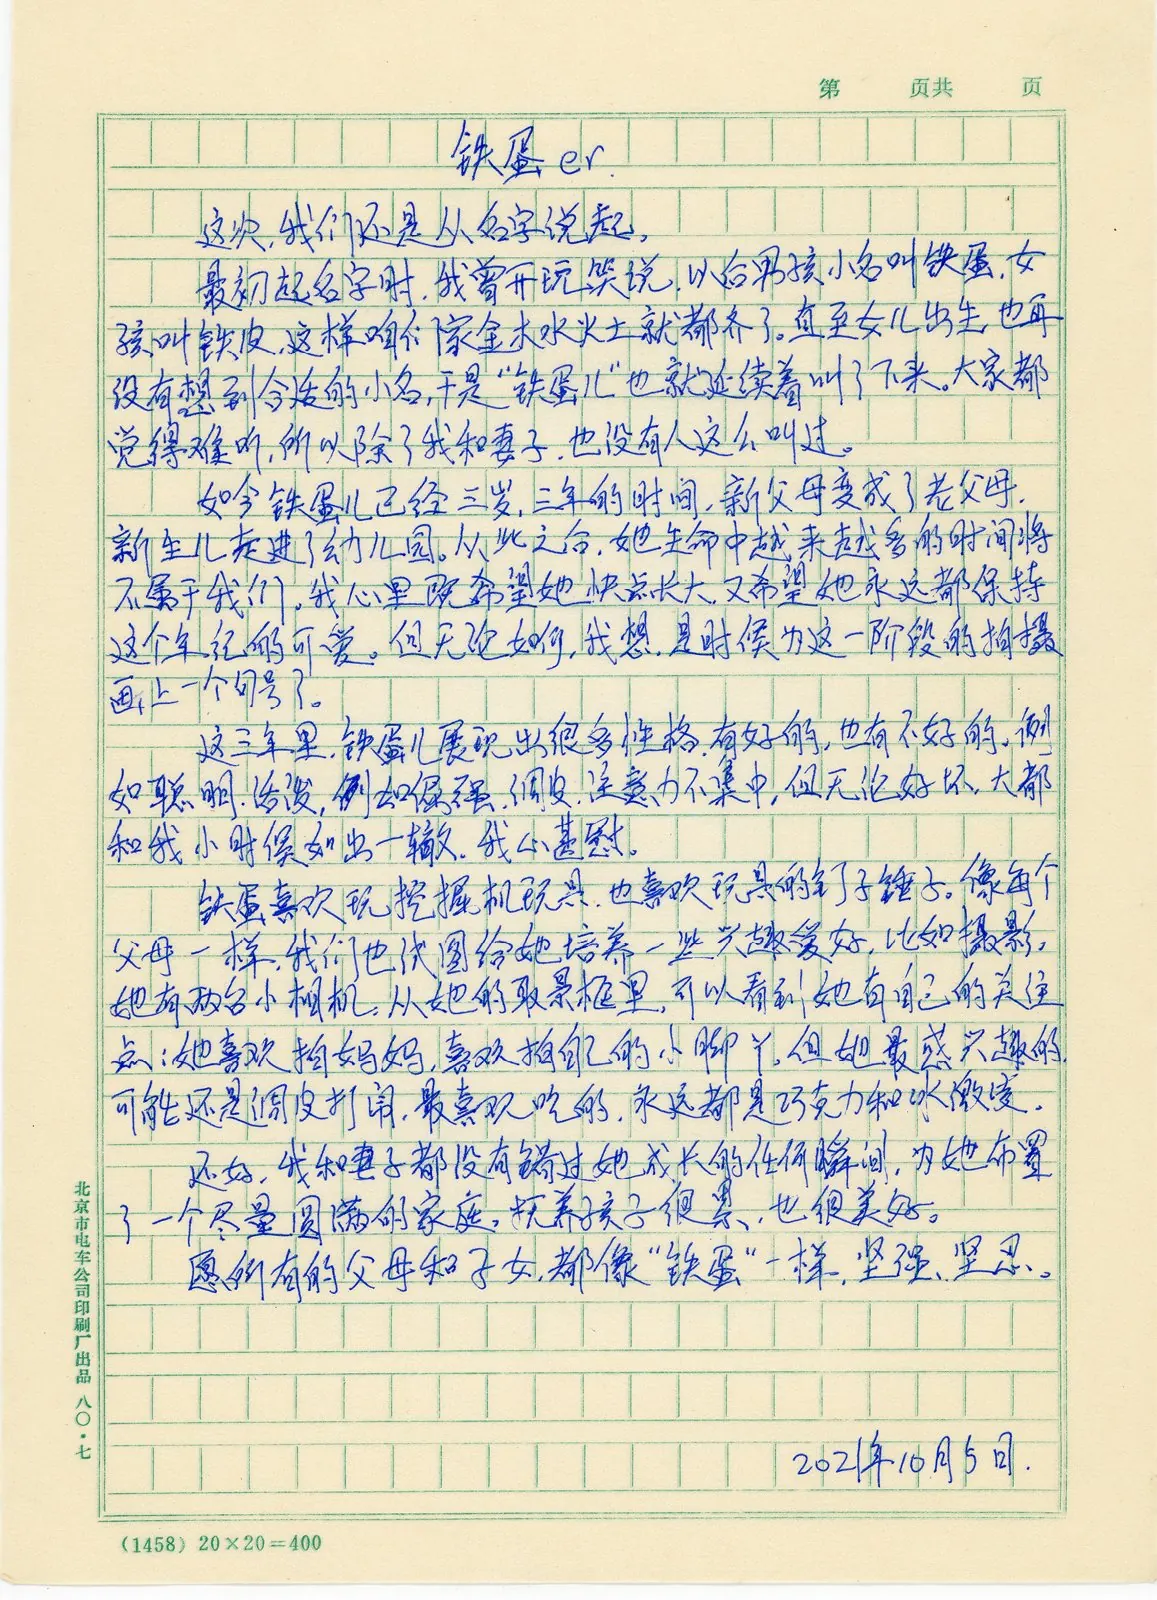 第 页共 页
铁蛋er.
这次,我们还是从名字说起。
最初起名字时,我曾开玩笑说,以后男孩小名叫铁蛋,女
孩叫铁皮,这样咱们家金木水火土就都齐了。直至女儿出生,也再
没有想到合适的小名,于是“铁蛋儿”也就延续着叫了下来。大家都
觉得难听,所以除了我和妻子,也没有人这么叫过。
如今铁蛋儿已经三岁,三年的时间,新父母变成了老父母,
新生儿走进了幼儿园。从此之后,她生命中越来越多的时间将
不属于我们。我心里既希望她快点长大,又希望她永远都保持
这个年纪的可爱。但无论如何,我想,是时候为这一阶段的拍摄
画上一个句号了。
这三年里,铁蛋儿展现出很多性格,有好的,也有不好的。例
如聪明、活泼,例如倔强、调皮、注意力不集中,但无论好坏,大都
和我小时候如出一辙,我心甚慰。
铁蛋喜欢玩挖掘机玩具,也喜欢玩具的钉子锤子。像每个
父母一样,我们也试图给她培养一些兴趣爱好,比如摄影。
她有两台小相机,从她的取景框里,可以看到她有自己的关注
点:她喜欢拍妈妈,喜欢拍自己的小脚丫。但她最感兴趣的,
可能还是调皮打闹,最喜欢吃的,永远都是巧克力和冰激凌。
还好,我和妻子都没有错过她成长的任何瞬间,为她布置
了一个尽量圆满的家庭。抚养孩子很累,也很美好。
愿所有的父母和子女,都像“铁蛋”一样,坚强、坚忍。
2021年10月5日.
北京市电车公司印刷厂出品 八〇·七
(1458) 20×20=400